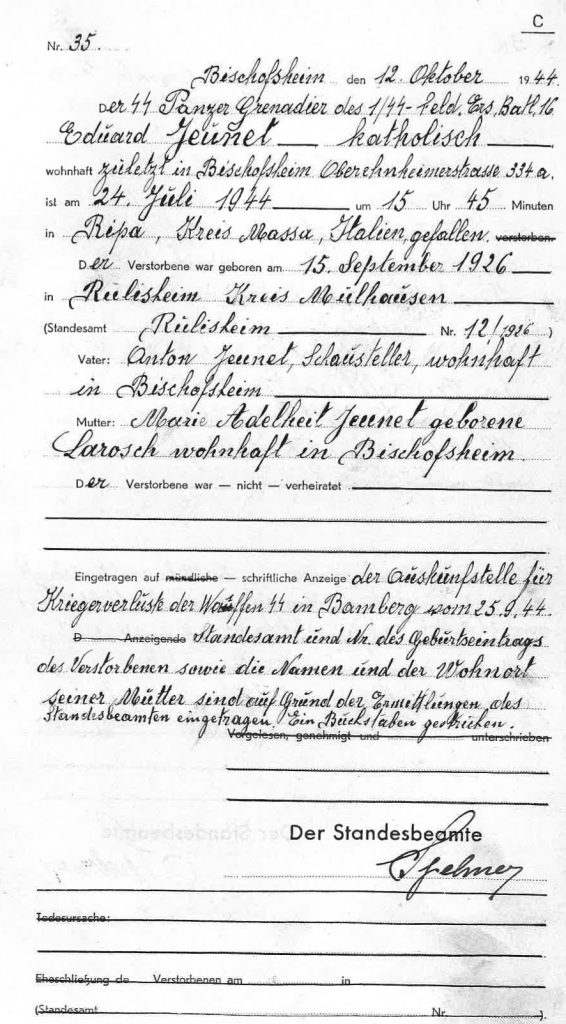 C
Nr. 35.
Bischofsheim den 12. Oktober 1944
Der SS Panzer Grenadier des 1/SS-Feld. Ers. Batl. 16
Eduard Jeunet — katholisch —
wohnhaft zuletzt in Bischofsheim Oberehnheimerstrasse 334a.
ist am 24. Juli 1944 — um 15 Uhr 45 Minuten
in Ripa, Kreis Massa, Italien, gefallen. verstorben.
Der Verstorbene war geboren am 15. September 1926 —
in Rülisheim Kreis Mülhausen —
(Standesamt Rülisheim — Nr. 12/1926)
Vater: Anton Jeunet, Schausteller, wohnhaft
in Bischofsheim —
Mutter: Marie Adelheit Jeunet geborene
Larosch wohnhaft in Bischofsheim.
Der Verstorbene war — nicht — verheiratet —
Eingetragen auf mündliche — schriftliche Anzeige der Auskunfstelle für
Kriegerverluste der Waffen SS in Bamberg vom 25.9.44.
D Anzeigende Standesamt und Nr. des Geburtseintrags
des Verstorbenen sowie die Namen und der Wohnort
seiner Mutter sind auf Grund der Ermittlungen des
Standesbeamten eingetragen. Ein Buchstaben gestrichen.
Vorgelesen, genehmigt und unterschrieben
Der Standesbeamte
Todesursache:
Eheschließung de Verstorbenen am in
(Standesamt Nr. ).